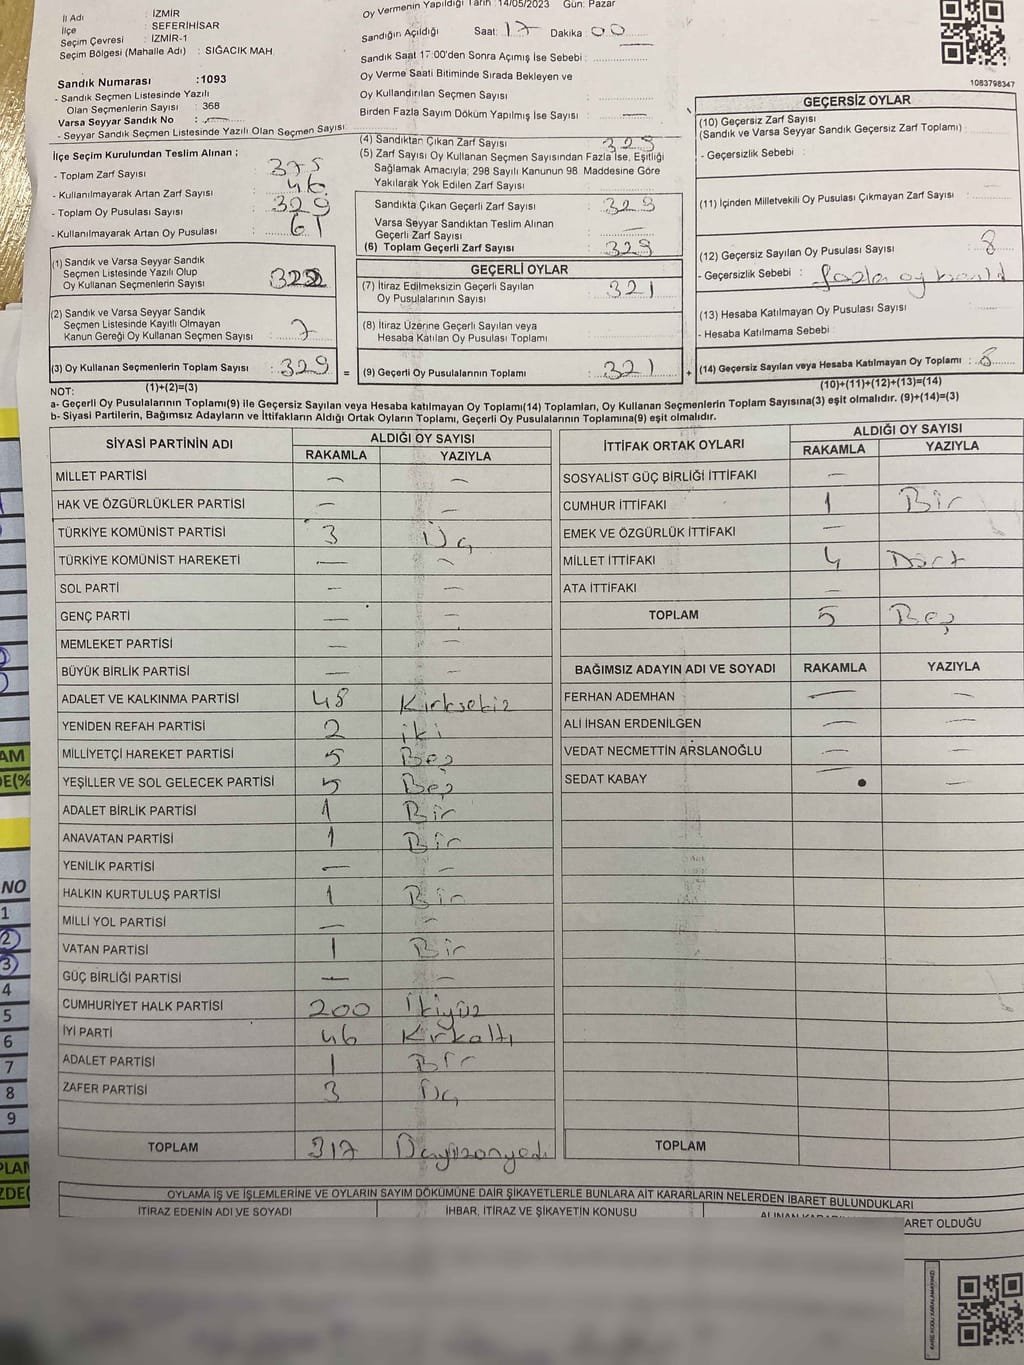 İl Adı : İZMİR
İlçe : SEFERİHİSAR
Seçim Çevresi : İZMİR-1
Seçim Bölgesi (Mahalle Adı) : SIĞACIK MAH.
Sandık Numarası :1093
- Sandık Seçmen Listesinde Yazılı
Olan Seçmenlerin Sayısı : 368
Varsa Seyyar Sandık No : —
- Seyyar Sandık Seçmen Listesinde Yazılı Olan Seçmen Sayısı
İlçe Seçim Kurulundan Teslim Alınan ;
- Toplam Zarf Sayısı : 375
- Kullanılmayarak Artan Zarf Sayısı : 46
- Toplam Oy Pusulası Sayısı : 329
- Kullanılmayarak Artan Oy Pusulası : 61
(1) Sandık ve Varsa Seyyar Sandık
Seçmen Listesinde Yazılı Olup
Oy Kullanan Seçmenlerin Sayısı : 322
(2) Sandık ve Varsa Seyyar Sandık
Seçmen Listesinde Kayıtlı Olmayan
Kanun Gereği Oy Kullanan Seçmen Sayısı : 7
(3) Oy Kullanan Seçmenlerin Toplam Sayısı : 329
(1)+(2)=(3)
Oy Vermenin Yapıldığı Tarih :14/05/2023 Gün: Pazar
Sandığın Açıldığı Saat: 17 Dakika : 00
Sandık Saat 17:00'den Sonra Açımış İse Sebebi :
Oy Verme Saati Bitiminde Sırada Bekleyen ve
Oy Kullandırılan Seçmen Sayısı :
Birden Fazla Sayım Döküm Yapılmış İse Sayısı : —
(4) Sandıktan Çıkan Zarf Sayısı : 329
(5) Zarf Sayısı Oy Kullanan Seçmen Sayısından Fazla İse, Eşitliği
Sağlamak Amacıyla; 298 Sayılı Kanunun 98. Maddesine Göre
Yakılarak Yok Edilen Zarf Sayısı :
Sandıkta Çıkan Geçerli Zarf Sayısı : 329
Varsa Seyyar Sandıktan Teslim Alınan
Geçerli Zarf Sayısı : —
(6) Toplam Geçerli Zarf Sayısı : 329
GEÇERLİ OYLAR
(7) İtiraz Edilmeksizin Geçerli Sayılan
Oy Pusulalarının Sayısı : 321
(8) İtiraz Üzerine Geçerli Sayılan veya
Hesaba Katılan Oy Pusulası Toplamı :
= (9) Geçerli Oy Pusulalarının Toplamı : 321
1083798347
GEÇERSİZ OYLAR
(10) Geçersiz Zarf Sayısı
(Sandık ve Varsa Seyyar Sandık Geçersiz Zarf Toplamı) :
- Geçersizlik Sebebi :
(11) İçinden Milletvekili Oy Pusulası Çıkmayan Zarf Sayısı :
(12) Geçersiz Sayılan Oy Pusulası Sayısı : 8
- Geçersizlik Sebebi : fazla oy
(13) Hesaba Katılmayan Oy Pusulası Sayısı :
- Hesaba Katılmama Sebebi :
+ (14) Geçersiz Sayılan veya Hesaba Katılmayan Oy Toplamı : 8
(10)+(11)+(12)+(13)=(14)
NOT:
a- Geçerli Oy Pusulalarının Toplamı(9) ile Geçersiz Sayılan veya Hesaba katılmayan Oy Toplamı(14) Toplamları, Oy Kullanan Seçmenlerin Toplam Sayısına(3) eşit olmalıdır. (9)+(14)=(3)
b- Siyasi Partilerin, Bağımsız Adayların ve İttifakların Aldığı Ortak Oyların Toplamı, Geçerli Oy Pusulalarının Toplamına(9) eşit olmalıdır.
SİYASİ PARTİNİN ADI ALDIĞI OY SAYISI
RAKAMLA YAZIYLA
MİLLET PARTİSİ — —
HAK VE ÖZGÜRLÜKLER PARTİSİ — —
TÜRKİYE KOMÜNİST PARTİSİ 3 Üç
TÜRKİYE KOMÜNİST HAREKETİ — —
SOL PARTİ — —
GENÇ PARTİ — —
MEMLEKET PARTİSİ — —
BÜYÜK BİRLİK PARTİSİ — —
ADALET VE KALKINMA PARTİSİ 48 Kırksekiz
YENİDEN REFAH PARTİSİ 2 iki
MİLLİYETÇİ HAREKET PARTİSİ 5 Beş
YEŞİLLER VE SOL GELECEK PARTİSİ 5 Beş
ADALET BİRLİK PARTİSİ 1 Bir
ANAVATAN PARTİSİ 1 Bir
YENİLİK PARTİSİ — —
HALKIN KURTULUŞ PARTİSİ 1 Bir
MİLLİ YOL PARTİSİ — —
VATAN PARTİSİ 1 Bir
GÜÇ BİRLİĞİ PARTİSİ — —
CUMHURİYET HALK PARTİSİ 200 İkiyüz
İYİ PARTİ 46 Kırkaltı
ADALET PARTİSİ 1 Bir
ZAFER PARTİSİ 3 Üç
TOPLAM 317 Üçyüzonyedi
İTTİFAK ORTAK OYLARI ALDIĞI OY SAYISI
RAKAMLA YAZIYLA
SOSYALİST GÜÇ BİRLİĞİ İTTİFAKI —
CUMHUR İTTİFAKI 1 Bir
EMEK VE ÖZGÜRLÜK İTTİFAKI —
MİLLET İTTİFAKI 4 Dört
ATA İTTİFAKI —
TOPLAM 5 Beş
BAĞIMSIZ ADAYIN ADI VE SOYADI RAKAMLA YAZIYLA
FERHAN ADEMHAN — —
ALİ İHSAN ERDENİLGEN — —
VEDAT NECMETTİN ARSLANOĞLU — —
SEDAT KABAY — —
TOPLAM
OYLAMA İŞ VE İŞLEMLERİNE VE OYLARIN SAYIM DÖKÜMÜNE DAİR ŞİKAYETLERLE BUNLARA AİT KARARLARIN NELERDEN İBARET BULUNDUKLARI
İTİRAZ EDENİN ADI VE SOYADI İHBAR, İTİRAZ VE ŞİKAYETİN KONUSU ARET OLDUĞU
AM
DE(%
NO
1
2
3
4
5
6
7
8
9
PLAM
ZDE(